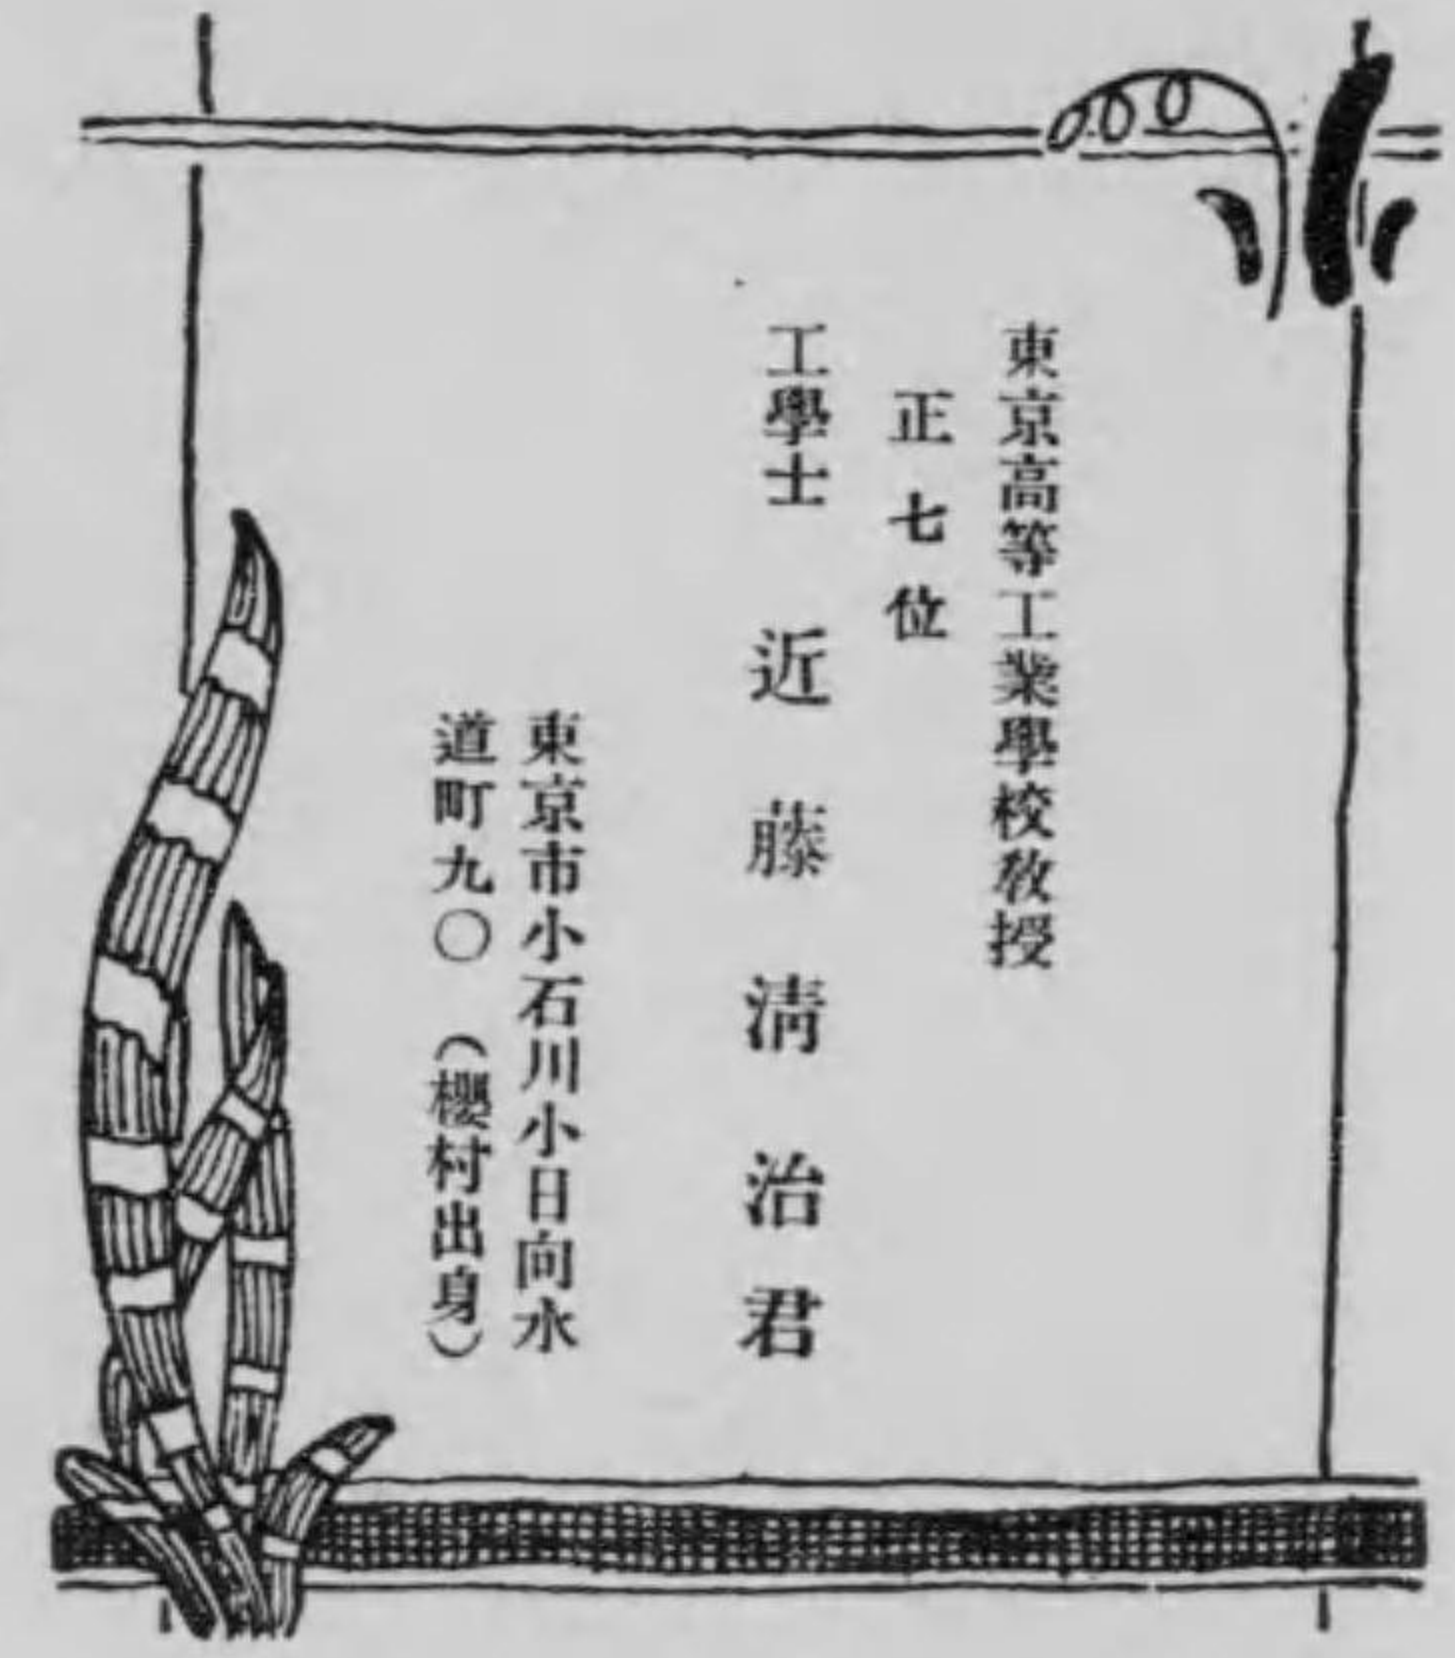 東京高等工業學校敎授
正七位
工學士 近藤淸治君
東京市小石川小日向水
道町九〇（櫻村出身）